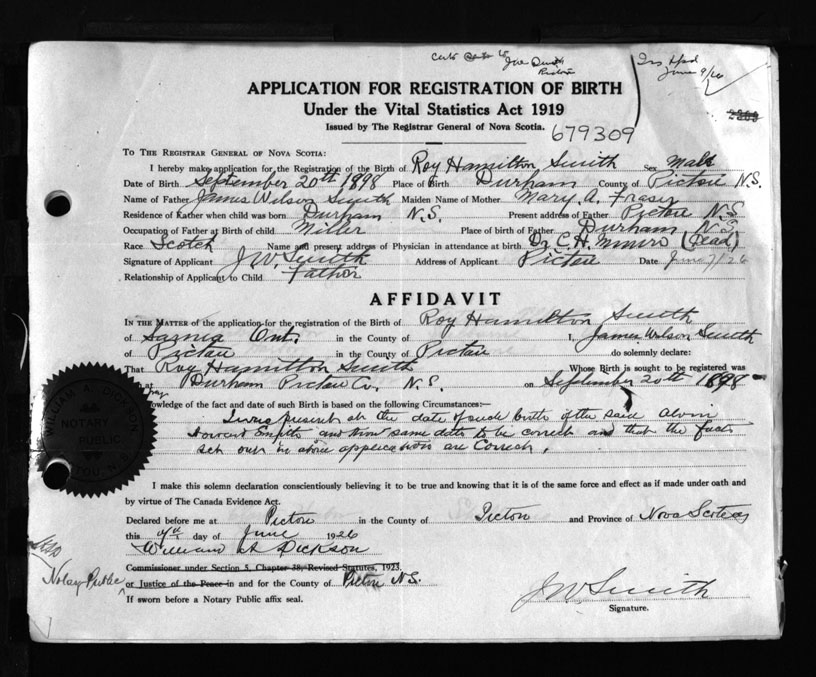 Joe Smith
Pictou
June 9/26
APPLICATION FOR REGISTRATION OF BIRTH
Under the Vital Statistics Act 1919
Issued by The Registrar General of Nova Scotia.
679309
TO THE REGISTRAR GENERAL OF NOVA SCOTIA:
I hereby make application for the Registration of the Birth of Roy Hamilton Smith Sex Male
Date of Birth September 20th 1898 Place of Birth Durham County of Pictou N.S.
Name of Father James Wilson Smith Maiden Name of Mother Mary A. Fraser
Residence of Father when child was born Durham N.S. Present address of Father Pictou N.S.
Occupation of Father at Birth of child Miller Place of birth of Father Durham N.S.
Race Scotch Name and present address of Physician in attendance at birth Dr C.H. Munro (Dead)
Signature of Applicant J.W. Smith Address of Applicant Pictou Date June 7/26
Relationship of Applicant to Child Father
AFFIDAVIT
IN THE MATTER of the application for the registration of the Birth of Roy Hamilton Smith
of Sarnia Ont. in the County of I, James Wilson Smith
of Pictou in the County of Pictou do solemnly declare:
That Roy Hamilton Smith Whose Birth is sought to be registered was
at Durham Pictou Co. N.S. on September 20th 1898
my knowledge of the fact and date of such Birth is based on the following Circumstances:—
I was present at the date of such birth of the said Alvin
Howard Smith and know same date to be correct and that the facts
set out in above application are Correct.
I make this solemn declaration conscientiously believing it to be true and knowing that it is of the same force and effect as if made under oath and
by virtue of The Canada Evidence Act.
Declared before me at Pictou in the County of Pictou and Province of Nova Scotia
this 7th day of June 1926
William A Dickson
Commissioner under Section 5, Chapter 38, Revised Statutes, 1923.
Notary Public
or Justice of the Peace in and for the County of Pictou N.S.
If sworn before a Notary Public affix seal.
J W Smith
Signature.
WILLIAM A. DICKSON
NOTARY PUBLIC
PICTOU, N.S.